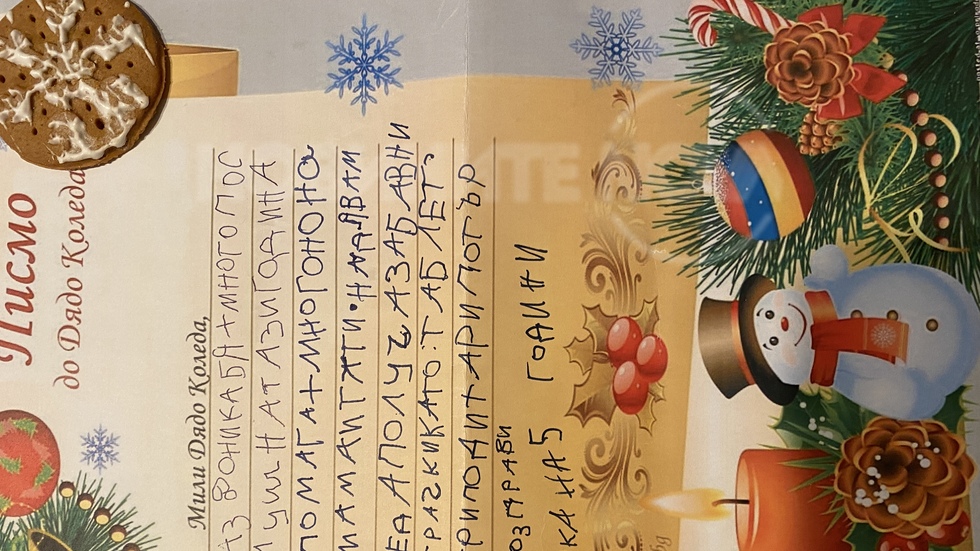 Писмо
до Дядо Коледа
Мили Дядо Коледа,
АЗ ФОНИКАБЯХМНОГОПОС
НАТАЗИГОДИНА
ПОМАГАХМНОГОНОНО
МАМАИТАТИ•НАДЯВАМ
ДАПОЛУЧАЗАБАВНИ
РАЧКИКАТО:ТАБЛЕТ,
РИПОДИХАРИПОТЪР
ОЗДРАВИ
КА НА5 ГОДИНИ
bg